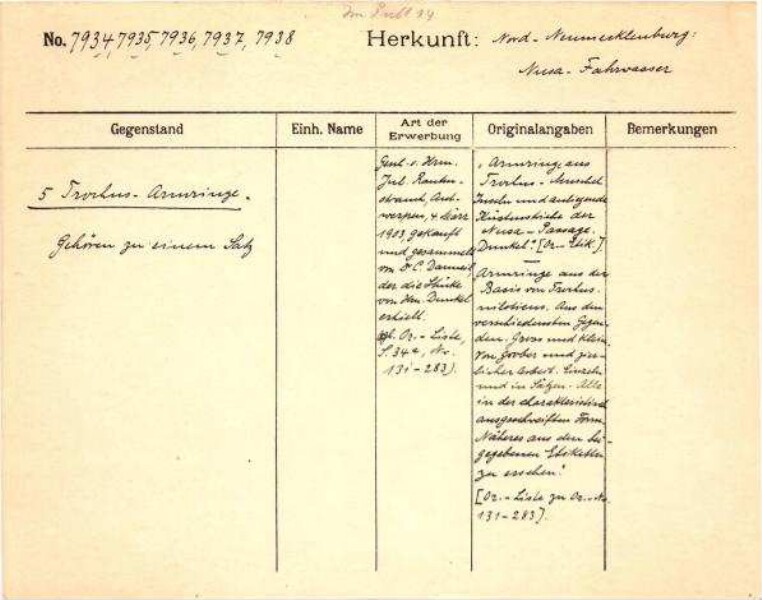 No. 7934, 7935, 7936, 7937, 7938
Herkunft: Nord-Neumecklenburg:
Nusa-Fahrwasser
Gegenstand
Einh. Name
Art der Erwerbung
Originalangaben
Bemerkungen
5 Trochus-Armringe.
Gehören zu einem Satz
Gesch. v. Hrn.
Jul. Rauten-
strauch, Ant-
werpen, 4 März
1903, gekauft
und gesammelt
von Dr C. Danneil,
der die Stücke
von Hrn. Dunkel
erhielt.
vgl. Or.-Liste,
S. 34a, No.
131-283).
"Armringe aus
Trochus-Muschel
Inseln und anliegende
Küstenstriche der
Nusa-Passage.
Dunkel". [Or-Etik.].
"Armringe aus der
Basis von Trochus
niloticus. Aus den
verschiedensten Gegen-
den. Gross und klein
von grober und zier-
licher Arbeit. Einzeln
und in Sätzen. Alle
in der charakteristisch
ausgeschweiften Form.
Näheres aus den bei-
gegebenen Etiketten
zu ersehen."
[Or.-Liste zu Or.-No.
131-283].